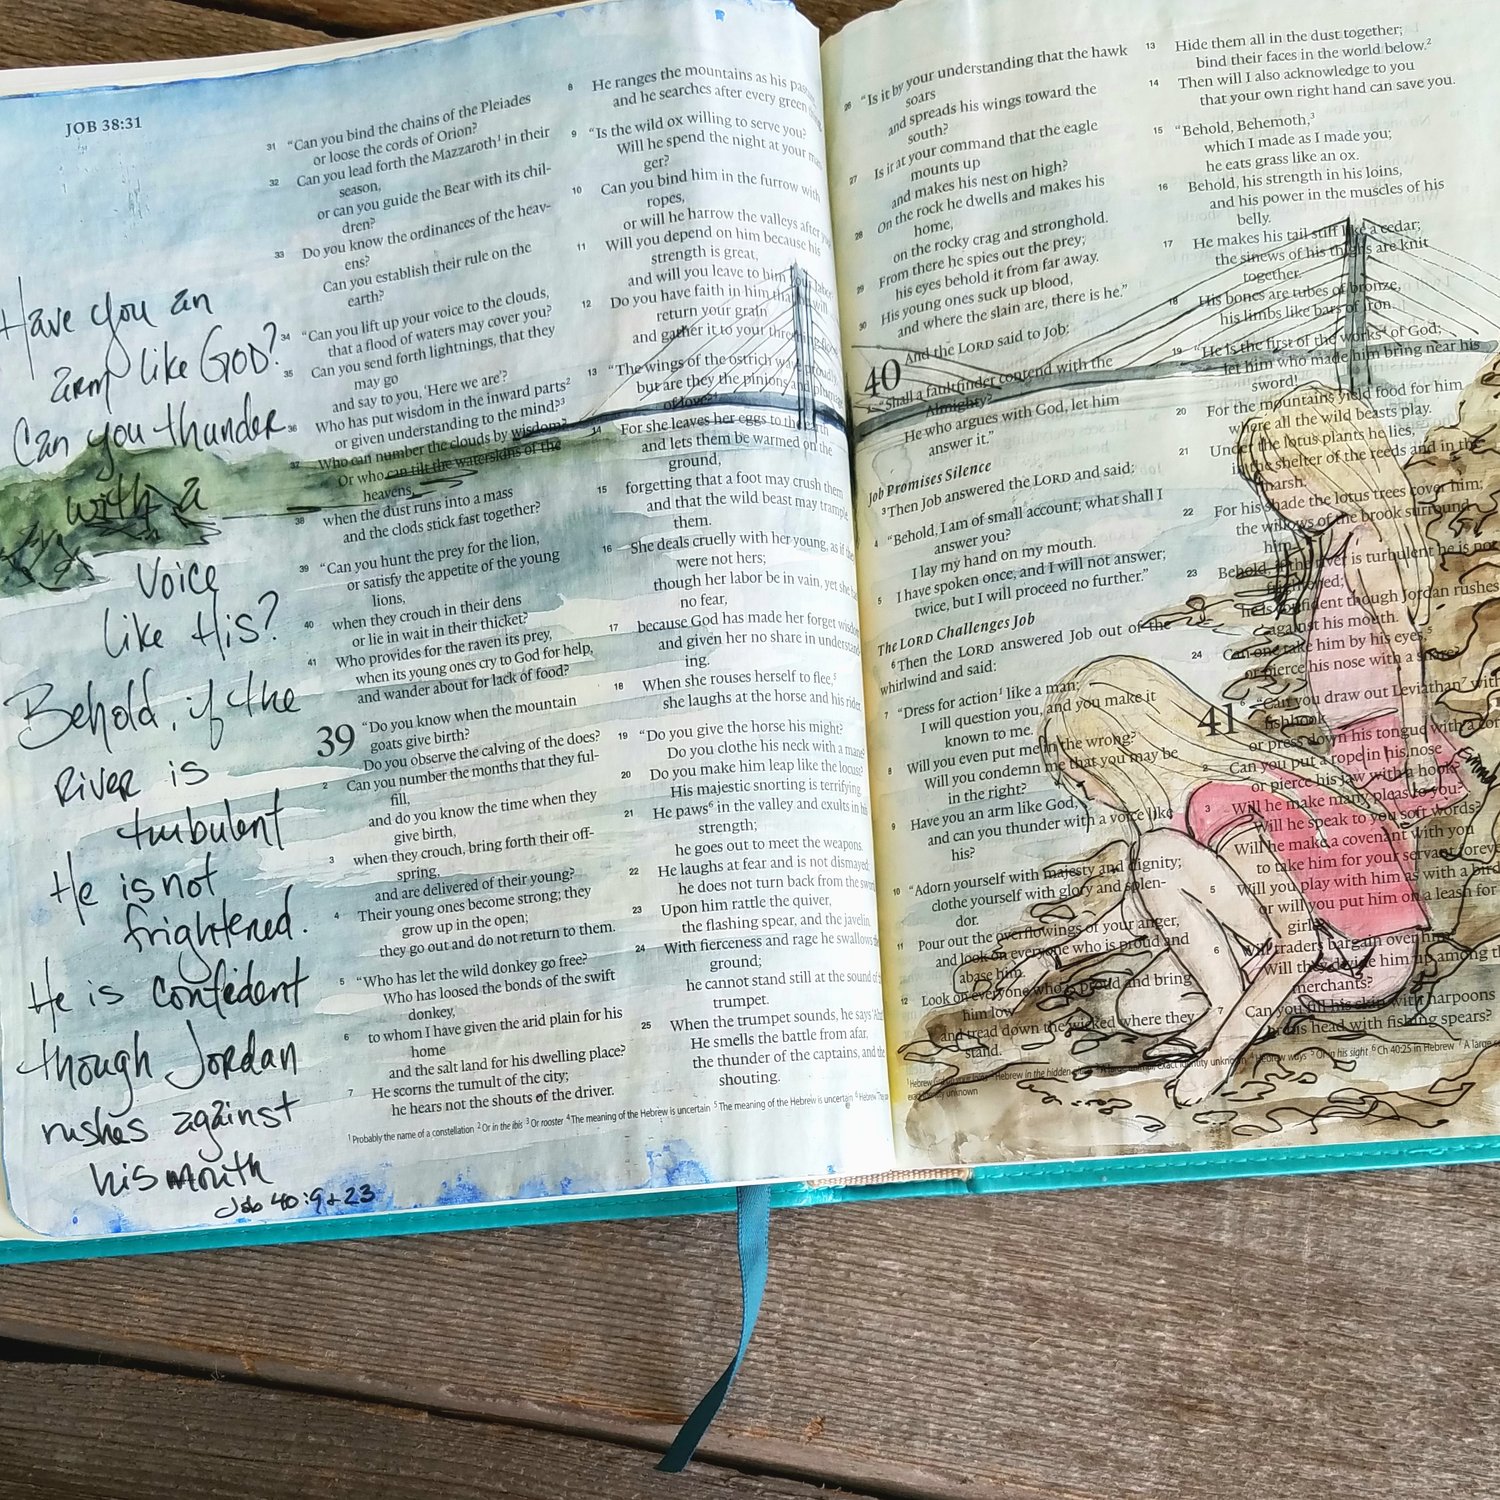 JOB 38:31
Have you an
arm like GOD?
Can you thunder
with a
Voice
like His?
Behold, if the
River is
turbulent
He is not
frightened.
He is confident
though Jordan
rushes against
his mouth
Job 40:9+23
31 “Can you bind the chains of the Pleiades
or loose the cords of Orion?
32 Can you lead forth the Mazzaroth1 in their
season,
or can you guide the Bear with its chil-
dren?
33 Do you know the ordinances of the heav-
ens?
Can you establish their rule on the
earth?
34 “Can you lift up your voice to the clouds,
that a flood of waters may cover you?
35 Can you send forth lightnings, that they
may go
and say to you, ‘Here we are’?
36 Who has put wisdom in the inward parts2
or given understanding to the mind?3
37 Who can number the clouds by wisdom?
Or who can tilt the waterskins of the
heavens,
38 when the dust runs into a mass
and the clods stick fast together?
39 “Can you hunt the prey for the lion,
or satisfy the appetite of the young
lions,
40 when they crouch in their dens
or lie in wait in their thicket?
41 Who provides for the raven its prey,
when its young ones cry to God for help,
and wander about for lack of food?
39 “Do you know when the mountain
goats give birth?
Do you observe the calving of the does?
2 Can you number the months that they ful-
fill,
and do you know the time when they
give birth,
3 when they crouch, bring forth their off-
spring,
and are delivered of their young?
4 Their young ones become strong; they
grow up in the open;
they go out and do not return to them.
5 “Who has let the wild donkey go free?
Who has loosed the bonds of the swift
donkey,
6 to whom I have given the arid plain for his
home
and the salt land for his dwelling place?
7 He scorns the tumult of the city;
he hears not the shouts of the driver.
8 He ranges the mountains as his
and he searches after every green
9 “Is the wild ox willing to serve you?
Will he spend the night at your
ger?
10 Can you bind him in the furrow with
ropes,
or will he harrow the valleys after
11 Will you depend on him because his
strength is great,
and will you leave to him
12 Do you have faith in him that
return your grain
and gather it to your
13 “The wings of the ostrich
but are they the pinions and
of love?
14 For she leaves her eggs to the
and lets them be warmed on the
ground,
15 forgetting that a foot may crush them
and that the wild beast may trample
them.
16 She deals cruelly with her young, as if
were not hers;
though her labor be in vain, yet she
no fear,
17 because God has made her forget wisdom
and given her no share in understand-
ing.
18 When she rouses herself to flee,5
she laughs at the horse and his rider.
19 “Do you give the horse his might?
Do you clothe his neck with a mane?
20 Do you make him leap like the locust?
His majestic snorting is terrifying
21 He paws6 in the valley and exults in his
strength;
he goes out to meet the weapons.
22 He laughs at fear and is not dismayed;
he does not turn back from the sword.
23 Upon him rattle the quiver,
the flashing spear, and the javelin.
24 With fierceness and rage he swallows the
ground;
he cannot stand still at the sound of
trumpet.
25 When the trumpet sounds, he says
He smells the battle from afar,
the thunder of the captains, and the
shouting.
1 Probably the name of a constellation 2 Or in the ibis 3 Or rooster 4 The meaning of the Hebrew is uncertain 5 The meaning of the Hebrew is uncertain 6 Hebrew
26 “Is it by your understanding that the hawk
soars
and spreads his wings toward the
south?
27 Is it at your command that the eagle
mounts up
and makes his nest on high?
28 On the rock he dwells and makes his
home,
on the rocky crag and stronghold.
29 From there he spies out the prey;
his eyes behold it from far away.
30 His young ones suck up blood,
and where the slain are, there is he.”
40 And the LORD said to Job:
2 “Shall a faultfinder contend with the
Almighty?
He who argues with God, let him
answer it.”
Job Promises Silence
3 Then Job answered the LORD and said:
4 “Behold, I am of small account; what shall I
answer you?
I lay my hand on my mouth.
5 I have spoken once, and I will not answer;
twice, but I will proceed no further.”
The LORD Challenges Job
6 Then the LORD answered Job out of the
whirlwind and said:
7 “Dress for action1 like a man;
I will question you, and you make it
known to me.
8 Will you even put me in the wrong?
Will you condemn me that you may be
in the right?
9 Have you an arm like God,
and can you thunder with a voice like
his?
10 “Adorn yourself with majesty and dignity;
clothe yourself with glory and splen-
dor.
11 Pour out the overflowings of your anger,
and look on everyone who is proud and
abase him.
12 Look on everyone who is proud and bring
him low
and tread down the wicked where they
stand.
13 Hide them all in the dust together;
bind their faces in the world below.2
14 Then will I also acknowledge to you
that your own right hand can save you.
15 “Behold, Behemoth,3
which I made as I made you;
he eats grass like an ox.
16 Behold, his strength in his loins,
and his power in the muscles of his
belly.
17 He makes his tail stiff like a cedar;
the sinews of his thighs are knit
together.
18 His bones are tubes of bronze,
his limbs like bars of iron.
19 “He is the first of the works4 of God;
let him who made him bring near his
sword!
20 For the mountains yield food for him
where all the wild beasts play.
21 Under the lotus plants he lies,
in the shelter of the reeds and in the
marsh.
22 For his shade the lotus trees cover him;
the willows of the brook surround
him.
23 Behold, if the river is turbulent he is not
frightened;
he is confident though Jordan rushes
against his mouth.
24 Can one take him by his eyes,5
or pierce his nose with a snare?
41 “Can you draw out Leviathan7 with
fishhook
or press down his tongue with a cord?
2 Can you put a rope in his nose
or pierce his jaw with a hook?
3 Will he make many pleas to you?
Will he speak to you soft words?
Will he make a covenant with you
to take him for your servant forever?
5 Will you play with him as with a bird
or will you put him on a leash for
girls?
6 Will traders bargain over him?
Will they divide him up among the
merchants?
7 Can you fill his skin with harpoons
or his head with fishing spears?
Hebrew in the hidden exact identity unknown 4 Hebrew ways 5 Or in his sight 6 Ch 40:25 in Hebrew 7 A large
exact identity unknown